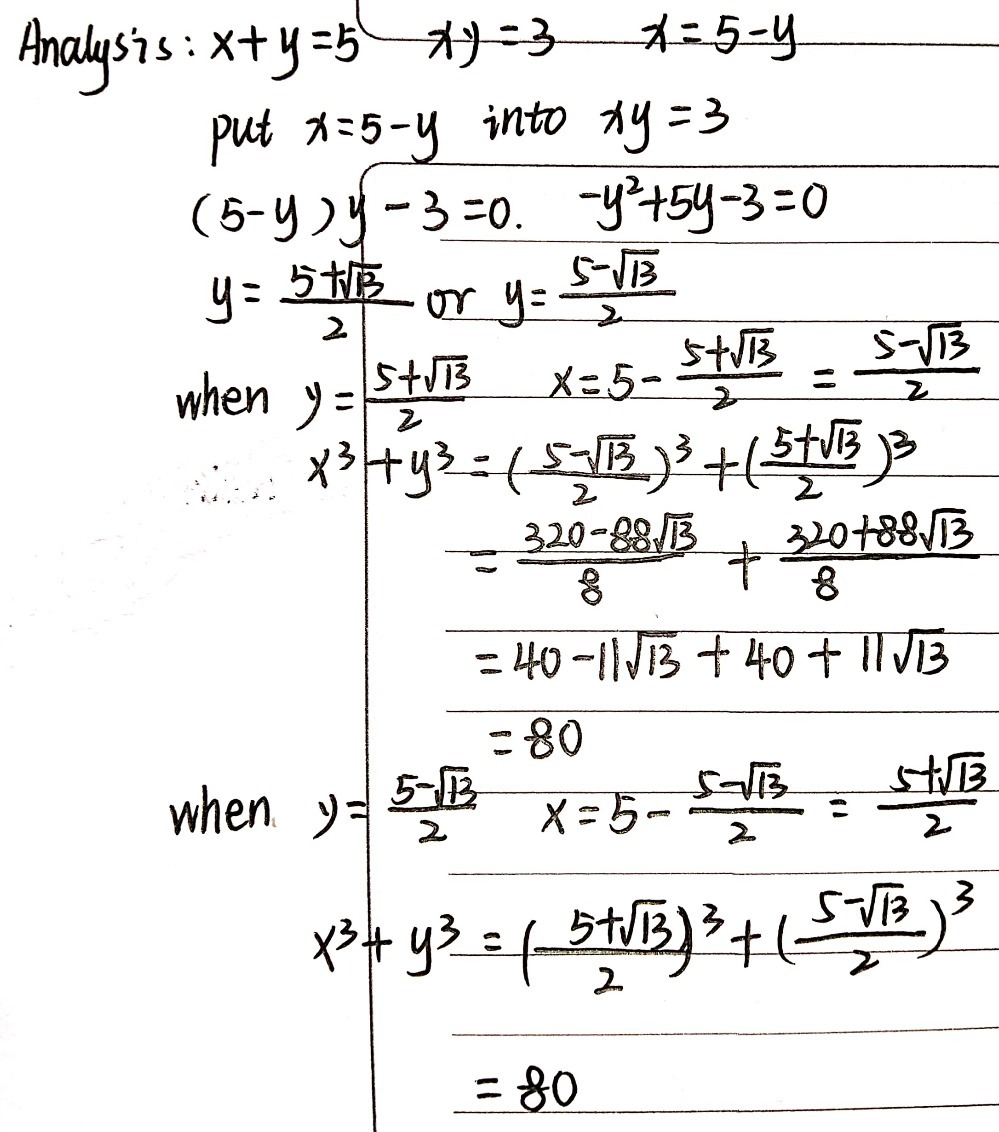 Analysis: x+y=5 xy=3 x=5-y
put x=5-y into xy=3
(5-y)y-3=0. -y²+5y-3=0
y=(5+√13)/2 or y=(5-√13)/2
when y=(5+√13)/2 x=5-(5+√13)/2=(5-√13)/2
x³+y³=((5-√13)/2)³+((5+√13)/2)³
=(320-88√13)/8+(320+88√13)/8
=40-11√13+40+11√13
=80
when y=(5-√13)/2 x=5-(5-√13)/2=(5+√13)/2
x³+y³=((5+√13)/2)³+((5-√13)/2)³
=80